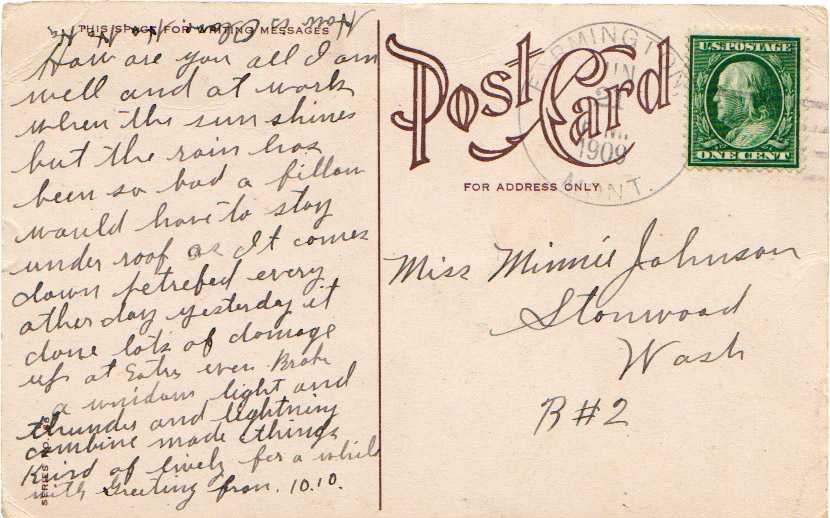 THIS SPACE FOR WRITING MESSAGES
How is
How are you all I am
well and at work
when the sun shines
but the rain has
been so bad a fillow
would have to stay
under roof as It comes
down petrefed every
other day yesterday it
done lots of damage
up at even Broke
a windom light and
thunder and lightning
combine made things
Kind of lively for a while
with Greeting from. 10.10.
SERIES NO.
Post Card
FOR ADDRESS ONLY
FARMINGTON
JUN
21
1909
MONT.
U.S. POSTAGE
ONE CENT
Miss Minnie Johnson
Stonwood
Wash
R#2